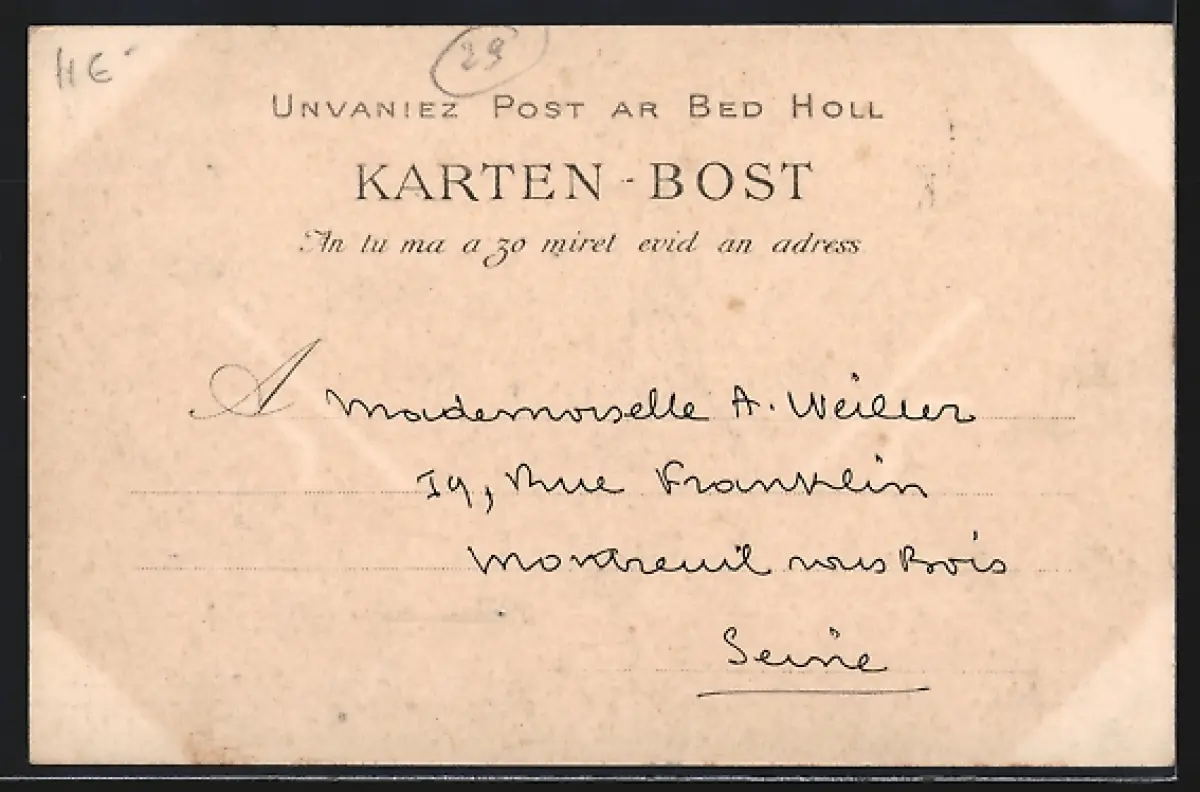 4 E
29
UNVANIEZ POST AR BED HOLL
KARTEN-BOST
An tu ma a zo miret evid an adress
A Mademoiselle A. Weiller
19, Rue Franklin
Montreuil sous Bois
Seine